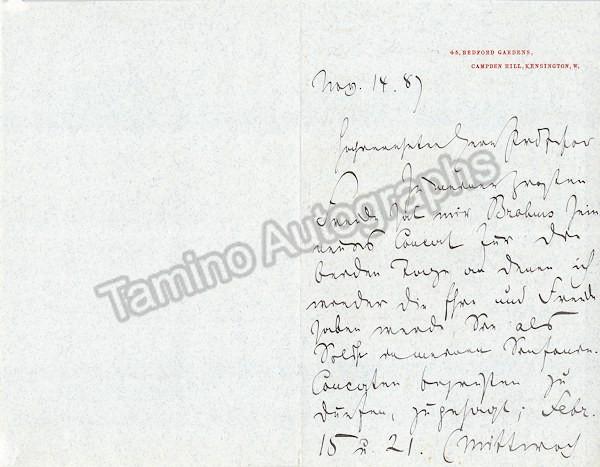 45, BEDFORD GARDENS,
CAMPDEN HILL, KENSINGTON, W.
Nov. 14. 87
Hochverehrter Herr Professor
Zu meiner großen
Freude hat mir Brahms sein
neues Concert für die
beiden Tage an denen ich
wieder die Ehre und Freude
haben werde, Sie als
Solist in meinen
Concerten begrüßen zu
dürfen, zugesagt; Febr.
15 u. 21. (Mittwoch
Tamino Autographs